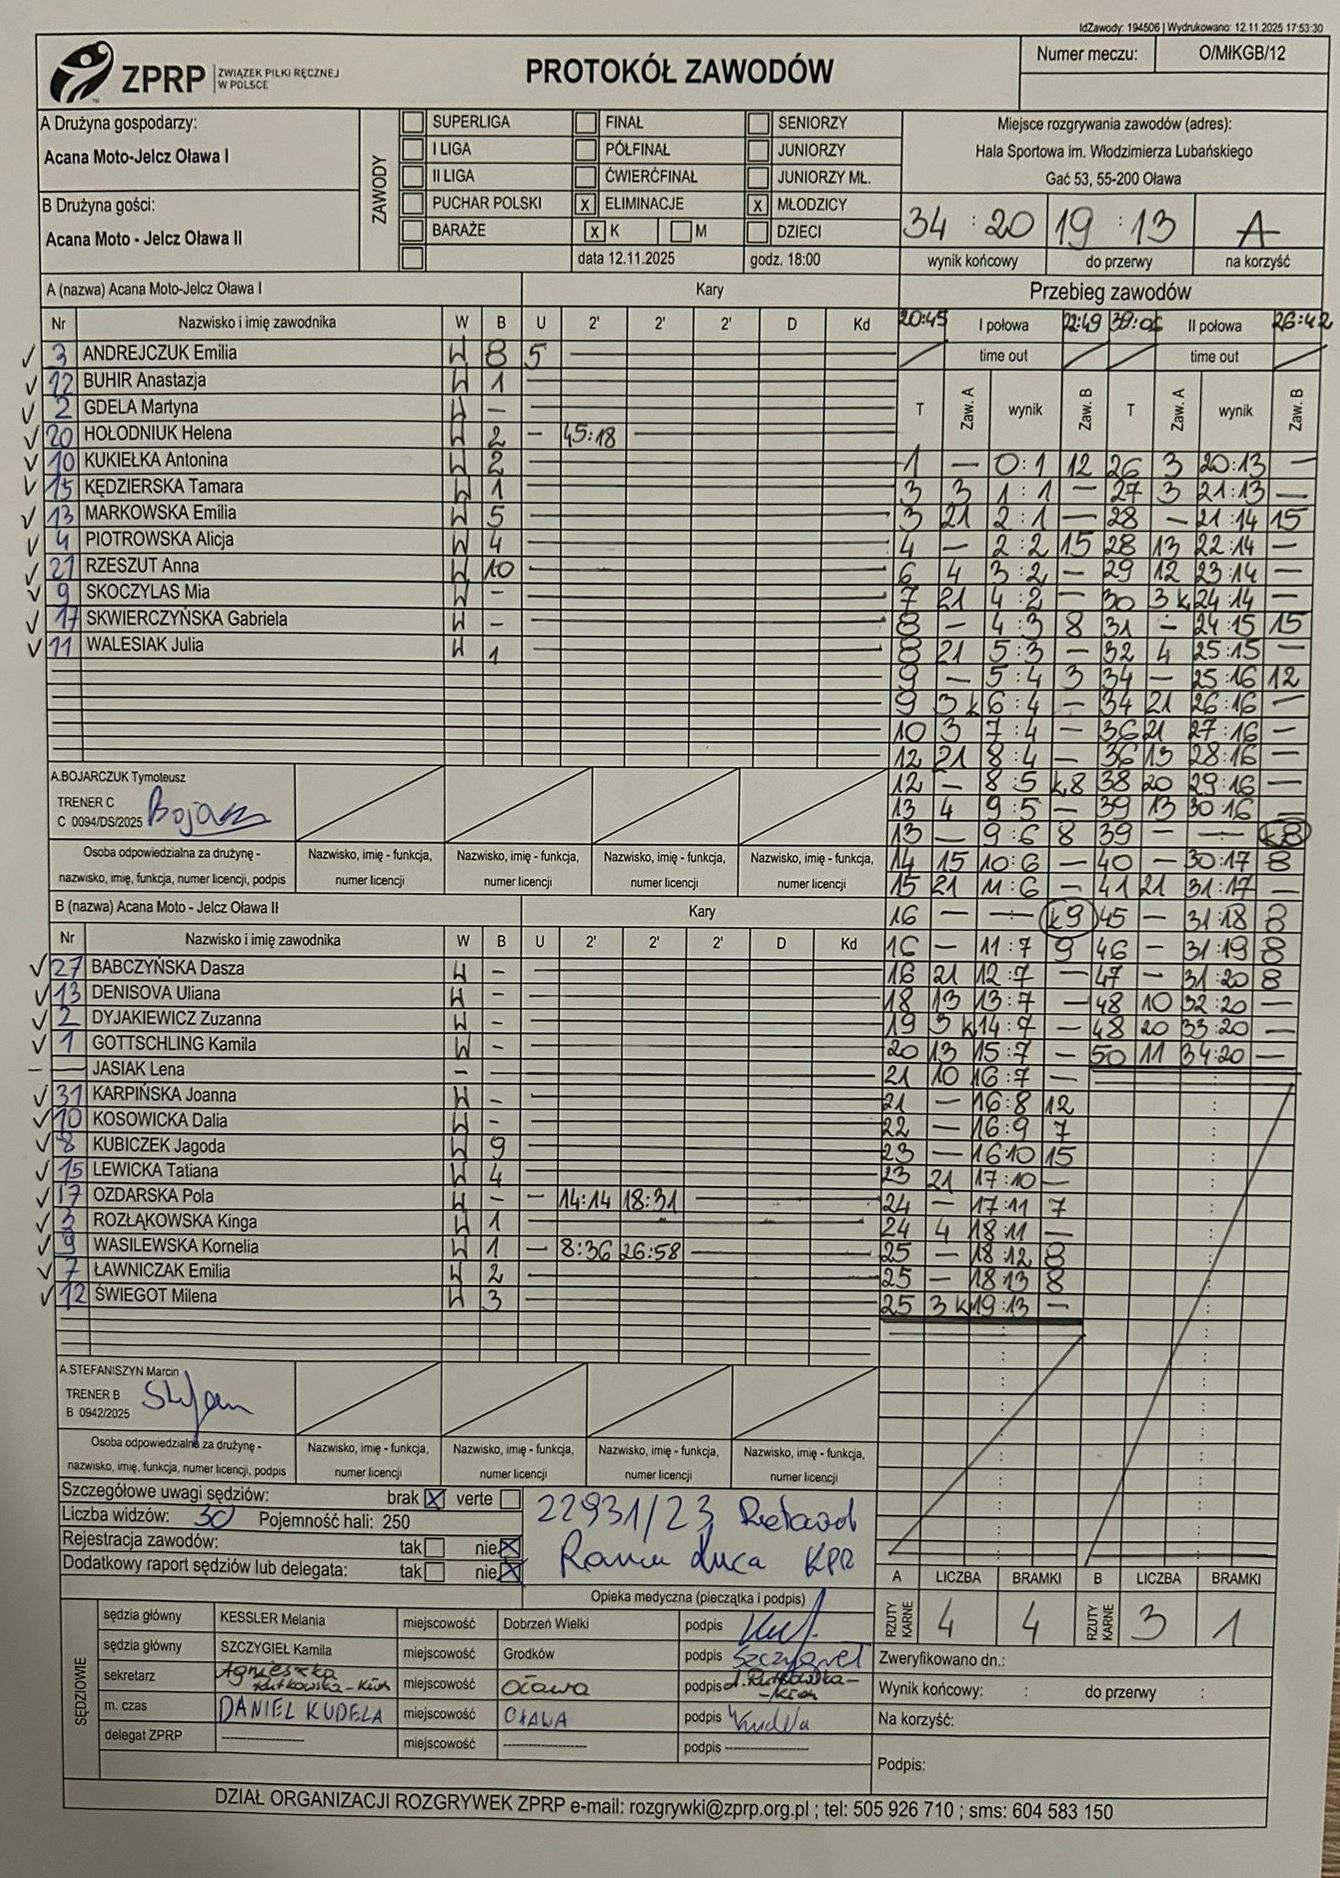 IdZawody: 194506 | Wydrukowano: 12.11.2025 17:53:30
ZPRP ZWIĄZEK PIŁKI RĘCZNEJ W POLSCE
PROTOKÓŁ ZAWODÓW
Numer meczu: O/MIKGB/12
A Drużyna gospodarzy:
Acana Moto-Jelcz Oława I
B Drużyna gości:
Acana Moto - Jelcz Oława II
ZAWODY
SUPERLIGA FINAŁ SENIORZY
I LIGA PÓŁFINAŁ JUNIORZY
II LIGA ĆWIERĆFINAŁ JUNIORZY MŁ.
PUCHAR POLSKI x ELIMINACJE x MŁODZICY
BARAŻE x K M DZIECI
data 12.11.2025 godz. 18:00
Miejsce rozgrywania zawodów (adres):
Hala Sportowa im. Włodzimierza Lubańskiego
Gać 53, 55-200 Oława
34 : 20 19 : 13 A
wynik końcowy do przerwy na korzyść
A (nazwa) Acana Moto-Jelcz Oława I Kary
Nr Nazwisko i imię zawodnika W B U 2' 2' 2' D Kd
3 ANDREJCZUK Emilia W 8 5
12 BUHIR Anastazja W 1
2 GDELA Martyna W -
20 HOŁODNIUK Helena W 2 - 45:18
10 KUKIEŁKA Antonina W 2
15 KĘDZIERSKA Tamara W 1
13 MARKOWSKA Emilia W 5
4 PIOTROWSKA Alicja W 4
21 RZESZUT Anna W 10
9 SKOCZYLAS Mia W -
17 SKWIERCZYŃSKA Gabriela W -
11 WALESIAK Julia W 1
A.BOJARCZUK Tymoteusz
TRENER C
C 0094/DS/2025
Osoba odpowiedzialna za drużynę - nazwisko, imię, funkcja, numer licencji, podpis
Nazwisko, imię - funkcja, numer licencji
Nazwisko, imię - funkcja, numer licencji
Nazwisko, imię - funkcja, numer licencji
Nazwisko, imię - funkcja, numer licencji
B (nazwa) Acana Moto - Jelcz Oława II Kary
Nr Nazwisko i imię zawodnika W B U 2' 2' 2' D Kd
27 BABCZYŃSKA Dasza W -
13 DENISOVA Uliana W -
2 DYJAKIEWICZ Zuzanna W -
1 GOTTSCHLING Kamila W -
- JASIAK Lena -
31 KARPIŃSKA Joanna W -
10 KOSOWICKA Dalia W -
8 KUBICZEK Jagoda W 9
15 LEWICKA Tatiana W 4
17 OZDARSKA Pola W - - 14:14 18:31
3 ROZŁĄKOWSKA Kinga W 1
9 WASILEWSKA Kornelia W 1 - 8:36 26:58
7 ŁAWNICZAK Emilia W 2
12 ŚWIEGOT Milena W 3
A.STEFANISZYN Marcin
TRENER B
B 0942/2025
Osoba odpowiedzialna za drużynę - nazwisko, imię, funkcja, numer licencji, podpis
Nazwisko, imię - funkcja, numer licencji
Nazwisko, imię - funkcja, numer licencji
Nazwisko, imię - funkcja, numer licencji
Nazwisko, imię - funkcja, numer licencji
Przebieg zawodów
20:45 I połowa 22:49 39:06 II połowa 26:42
time out time out
T Zaw. A wynik Zaw. B T Zaw. A wynik Zaw. B
1 — 0:1 12 26 3 20:13 —
3 3 1:1 — 27 3 21:13 —
3 21 2:1 — 28 — 21:14 15
4 — 2:2 15 28 13 22:14 —
6 4 3:2 — 29 12 23:14 —
7 21 4:2 — 30 3k 24:14 —
8 — 4:3 8 31 — 24:15 15
8 21 5:3 — 32 4 25:15 —
9 — 5:4 3 34 — 25:16 12
9 3k 6:4 — 34 21 26:16 —
10 3 7:4 — 36 21 27:16 —
12 21 8:4 — 36 13 28:16 —
12 — 8:5 k8 38 20 29:16 —
13 4 9:5 — 39 13 30:16 —
13 — 9:6 8 39 — — k8
14 15 10:6 — 40 — 30:17 8
15 21 11:6 — 41 21 31:17 —
16 — — k9 45 — 31:18 8
16 — 11:7 9 46 — 31:19 8
16 21 12:7 — 47 — 31:20 8
18 13 13:7 — 48 10 32:20 —
19 3k 14:7 — 48 20 33:20 —
20 13 15:7 — 50 11 34:20 —
21 10 16:7 —
21 — 16:8 12
22 — 16:9 7
23 — 16:10 15
23 21 17:10 —
24 — 17:11 7
24 4 18:11 —
25 — 18:12 8
25 — 18:13 8
25 3k 19:13 —
Szczegółowe uwagi sędziów: brak x verte
Liczba widzów: 30 Pojemność hali: 250
Rejestracja zawodów: tak nie x
Dodatkowy raport sędziów lub delegata: tak nie x
22931/23
Opieka medyczna (pieczątka i podpis)
A LICZBA BRAMKI B LICZBA BRAMKI
RZUTY KARNE 4 4 RZUTY KARNE 3 1
SĘDZIOWIE
sędzia główny KESSLER Melania miejscowość Dobrzeń Wielki podpis
sędzia główny SZCZYGIEŁ Kamila miejscowość Grodków podpis Szczygieł
sekretarz Agnieszka miejscowość Oława podpis
m. czas DANIEL KUDELA miejscowość OŁAWA podpis Kudela
delegat ZPRP ---------- miejscowość ---------- podpis ----------
Zweryfikowano dn.:
Wynik końcowy: : do przerwy :
Na korzyść:
Podpis:
DZIAŁ ORGANIZACJI ROZGRYWEK ZPRP e-mail: rozgrywki@zprp.org.pl ; tel: 505 926 710 ; sms: 604 583 150